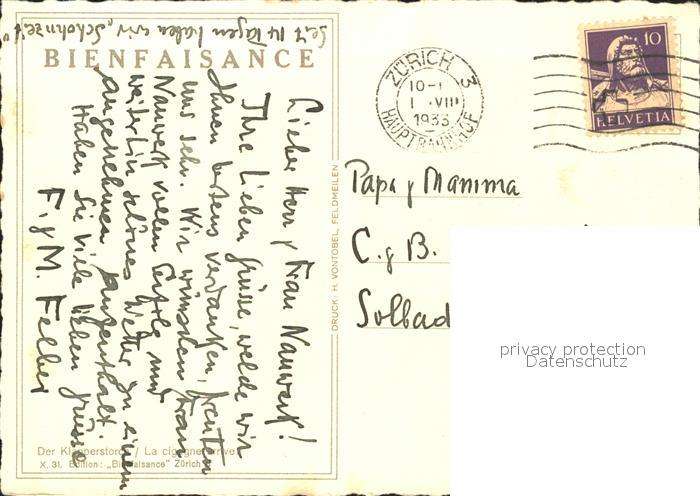 Seit 14 Tagen haben wir "Schohnzeit"
BIENFAISANCE
Lieber Herr & Frau Nauwerk!
Ihre lieben Grüsse, welche wir
Ihnen bestens verdanken, freuten
uns sehr. Wir wünschen Frau
Nauwerk vollen Erfolg und
weiterhin schönes Wetter zu einem
angenehmen Aufenthalt.
Haben Sie viele lieben Grüsse
F. & M. Felber
Der Klapperstorch / La cigogne arrive
X. 31. Edition: „Bienfaisance" Zürich
DRUCK: H. VONTOBEL, FELDMEILEN
ZÜRICH 3
10-1
1. VIII
1933
HAUPTBAHNHOF
10
HELVETIA
Papa & Mamma
C. & B.
Solbad
privacy protection
Datenschutz